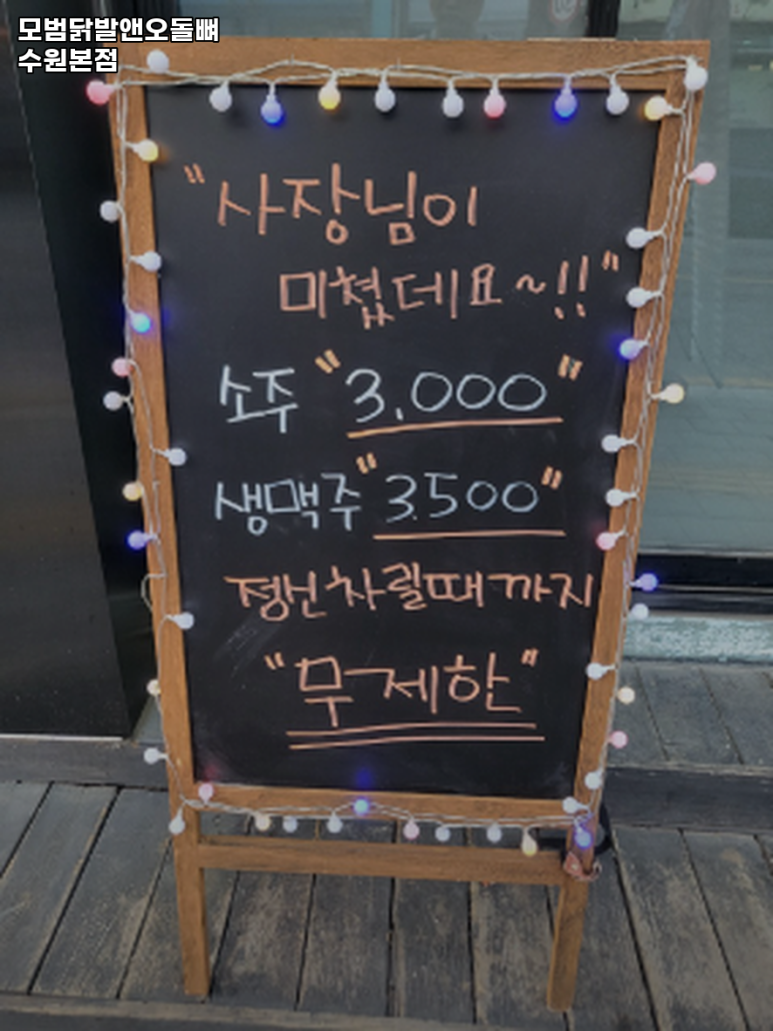 모범닭발앤오돌뼈
수원본점
"사장님이
미쳤데요~!!"
소주 "3,000"
생맥주 "3.500"
정신차릴때까지
"무제한"